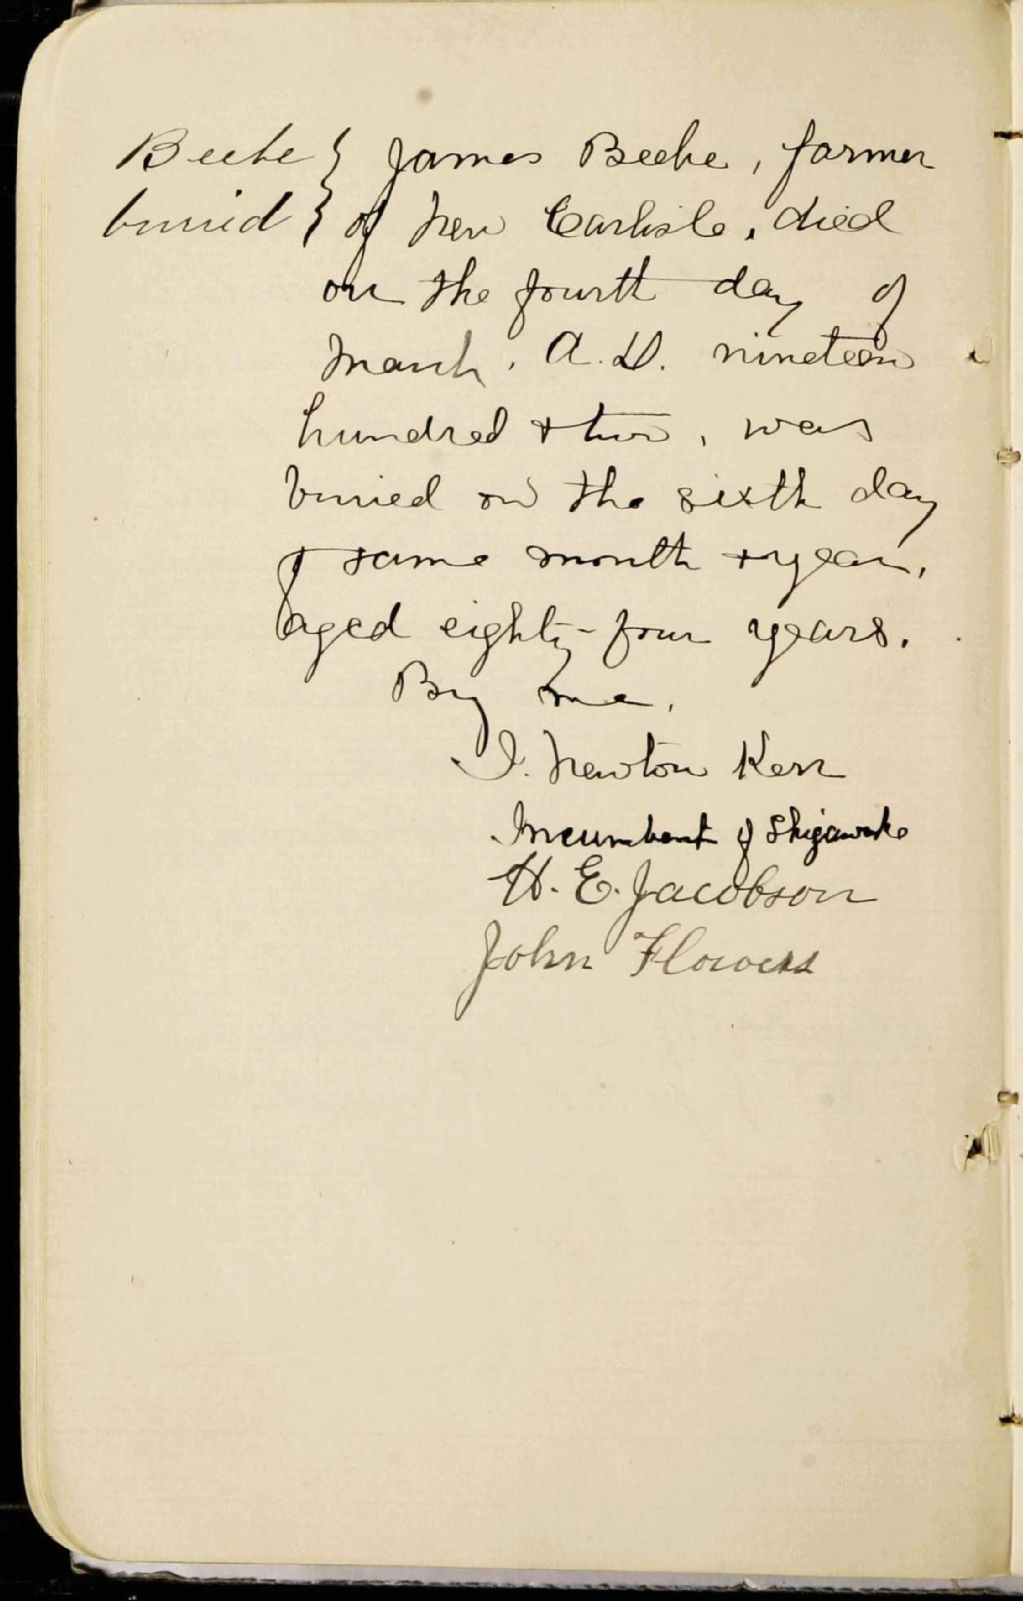 Beebe } James Beebe, farmer
buried } of New Carlisle, died
on the fourth day of
March, A.D. nineteen
hundred + two, was
buried on the sixth day
of same month + year,
aged eighty-four years.
By me,
I. Newton Kerr
Incumbent of Shigawake
H. E. Jacobson
John Flowers